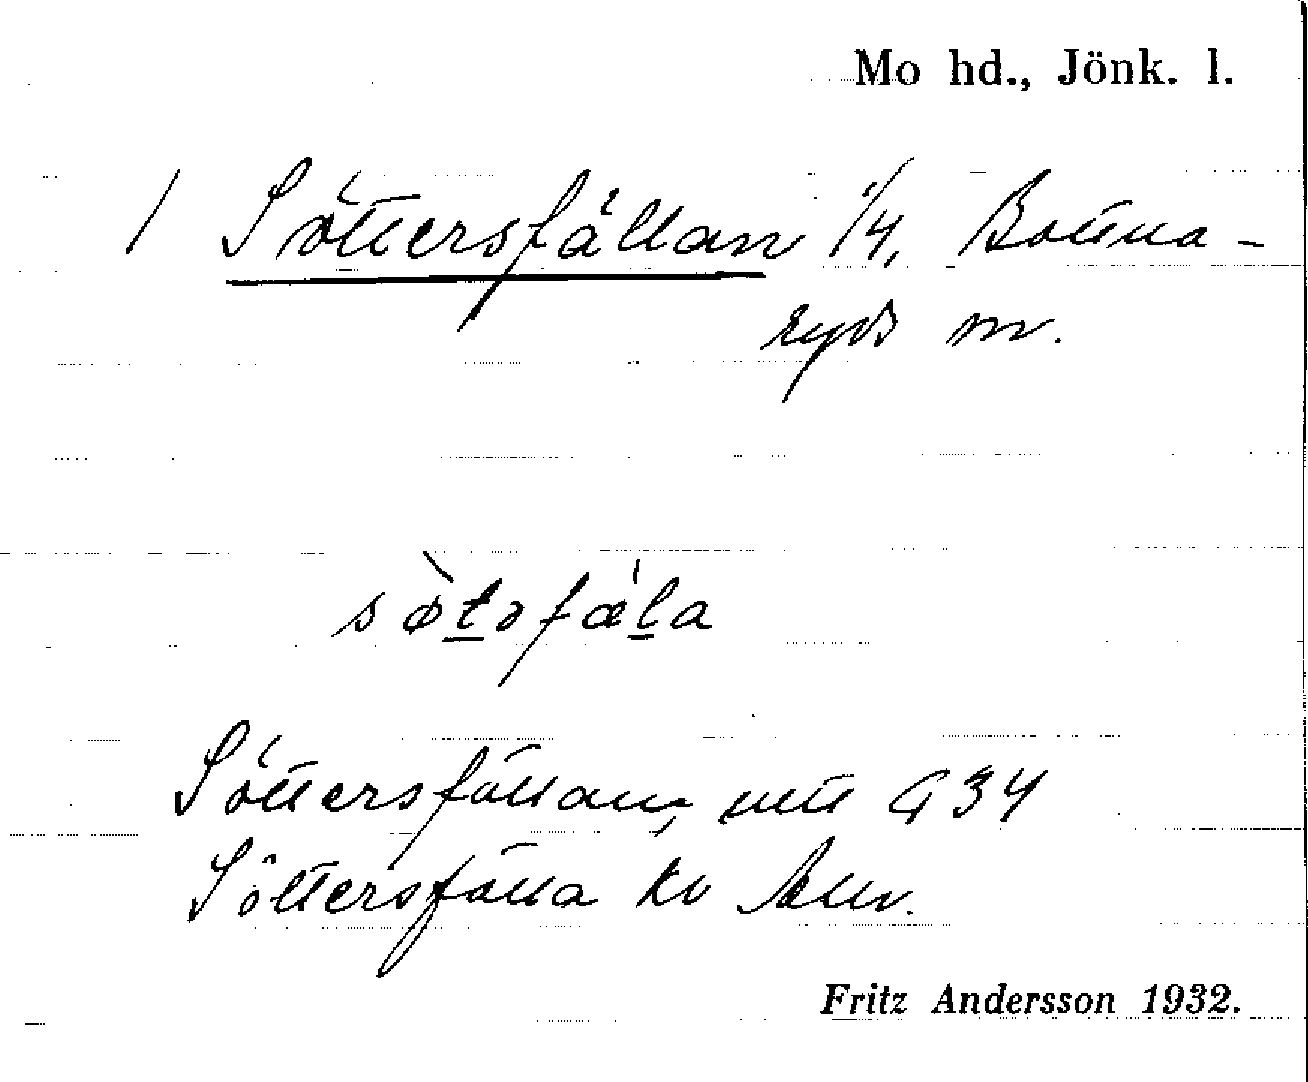 Mo hd., Jönk. l.
1 Söttersfällan 1/4, Bottna-
ryds sn.
sø̀təfæ̍la
Söttersfällan, utt G34
Söttersfälla kv
Fritz Andersson 1932.